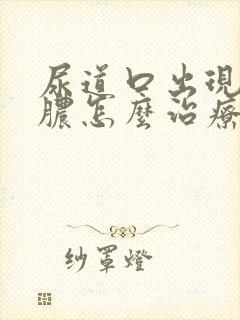 尿道口出現
膿怎麼治療
紗罩燈